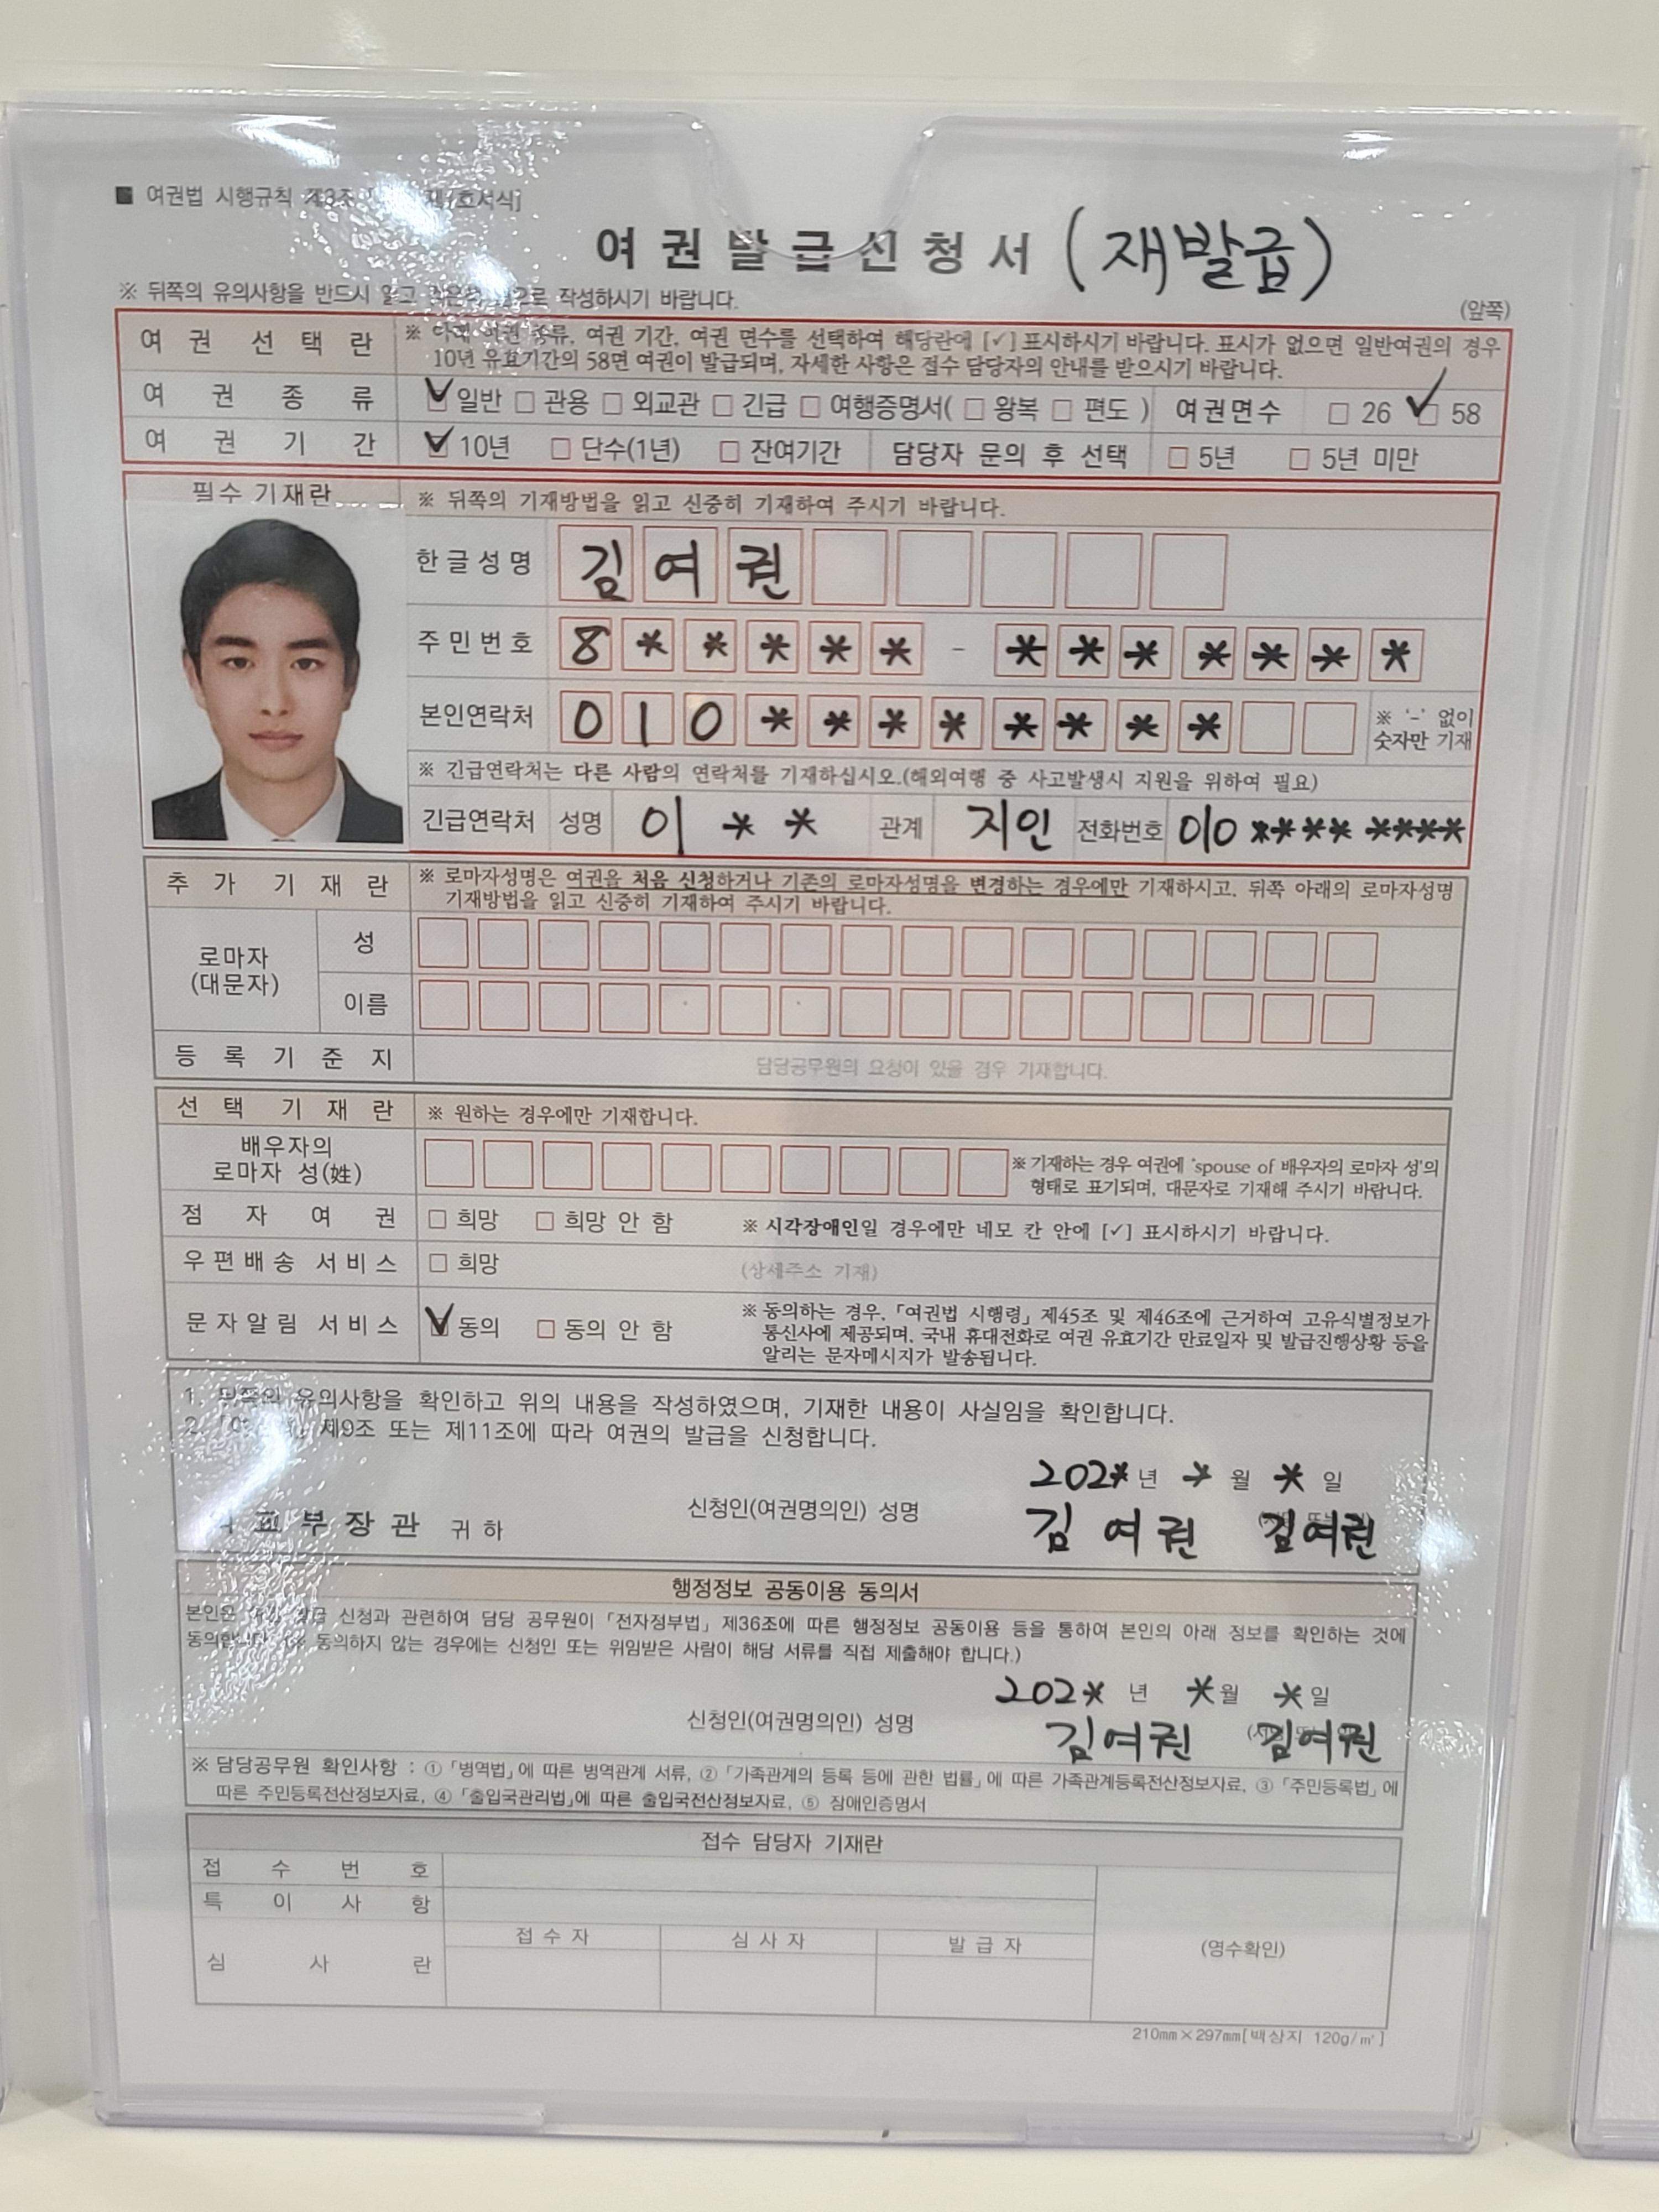 ■ 여권법 시행규칙
여권발급신청서 (재발급)
※ 뒤쪽의 유의사항을 반드시 읽고 작성하시기 바랍니다.
(앞쪽)
여 권 선 택 란
※ 아래 여권 종류, 여권 기간, 여권 면수를 선택하여 해당란에 [✓] 표시하시기 바랍니다. 표시가 없으면 일반여권의 경우
10년 유효기간의 58면 여권이 발급되며, 자세한 사항은 접수 담당자의 안내를 받으시기 바랍니다.
여 권 종 류 ☑ 일반 □ 관용 □ 외교관 □ 긴급 □ 여행증명서( □ 왕복 □ 편도 ) 여권면수 □ 26 ☑ 58
여 권 기 간 ☑ 10년 □ 단수(1년) □ 잔여기간 담당자 문의 후 선택 □ 5년 □ 5년 미만
필수 기재란
※ 뒤쪽의 기재방법을 읽고 신중히 기재하여 주시기 바랍니다.
한글성명 김 여 권
주민번호 8 * * * * * - * * * * * * *
본인연락처 0 1 0 * * * * * * * *
※ '-' 없이
숫자만 기재
※ 긴급연락처는 다른 사람의 연락처를 기재하십시오.(해외여행 중 사고발생시 지원을 위하여 필요)
긴급연락처 성명 이 * * 관계 지인 전화번호 010 **** ****
추 가 기 재 란
※ 로마자성명은 여권을 처음 신청하거나 기존의 로마자성명을 변경하는 경우에만 기재하시고, 뒤쪽 아래의 로마자성명
기재방법을 읽고 신중히 기재하여 주시기 바랍니다.
로마자
(대문자)
성
이름
등 록 기 준 지 담당공무원의 요청이 있을 경우 기재합니다.
선 택 기 재 란 ※ 원하는 경우에만 기재합니다.
배우자의
로마자 성(姓)
※ 기재하는 경우 여권에 'spouse of 배우자의 로마자 성'의
형태로 표기되며, 대문자로 기재해 주시기 바랍니다.
점 자 여 권 □ 희망 □ 희망 안 함 ※ 시각장애인일 경우에만 네모 칸 안에 [✓] 표시하시기 바랍니다.
우편배송 서비스 □ 희망 (상세주소 기재)
문자알림 서비스 ☑ 동의 □ 동의 안 함
※ 동의하는 경우, 「여권법 시행령」 제45조 및 제46조에 근거하여 고유식별정보가
통신사에 제공되며, 국내 휴대전화로 여권 유효기간 만료일자 및 발급진행상황 등을
알리는 문자메시지가 발송됩니다.
1. 뒤쪽의 유의사항을 확인하고 위의 내용을 작성하였으며, 기재한 내용이 사실임을 확인합니다.
2. 제9조 또는 제11조에 따라 여권의 발급을 신청합니다.
202* 년 * 월 * 일
신청인(여권명의인) 성명 김 여 권 김여권
교부장관 귀하
행정정보 공동이용 동의서
본인은 신청과 관련하여 담당 공무원이 「전자정부법」 제36조에 따른 행정정보 공동이용 등을 통하여 본인의 아래 정보를 확인하는 것에
동의합니다. (※ 동의하지 않는 경우에는 신청인 또는 위임받은 사람이 해당 서류를 직접 제출해야 합니다.)
202* 년 * 월 * 일
신청인(여권명의인) 성명 김여권 김여권
※ 담당공무원 확인사항 : ① 「병역법」에 따른 병역관계 서류, ② 「가족관계의 등록 등에 관한 법률」에 따른 가족관계등록전산정보자료, ③ 「주민등록법」에
따른 주민등록전산정보자료, ④ 「출입국관리법」에 따른 출입국전산정보자료, ⑤ 장애인증명서
접수 담당자 기재란
접 수 번 호
특 이 사 항
심 사 란
접 수 자 심 사 자 발 급 자
(영수확인)
210mm×297mm[백상지 120g/㎡]